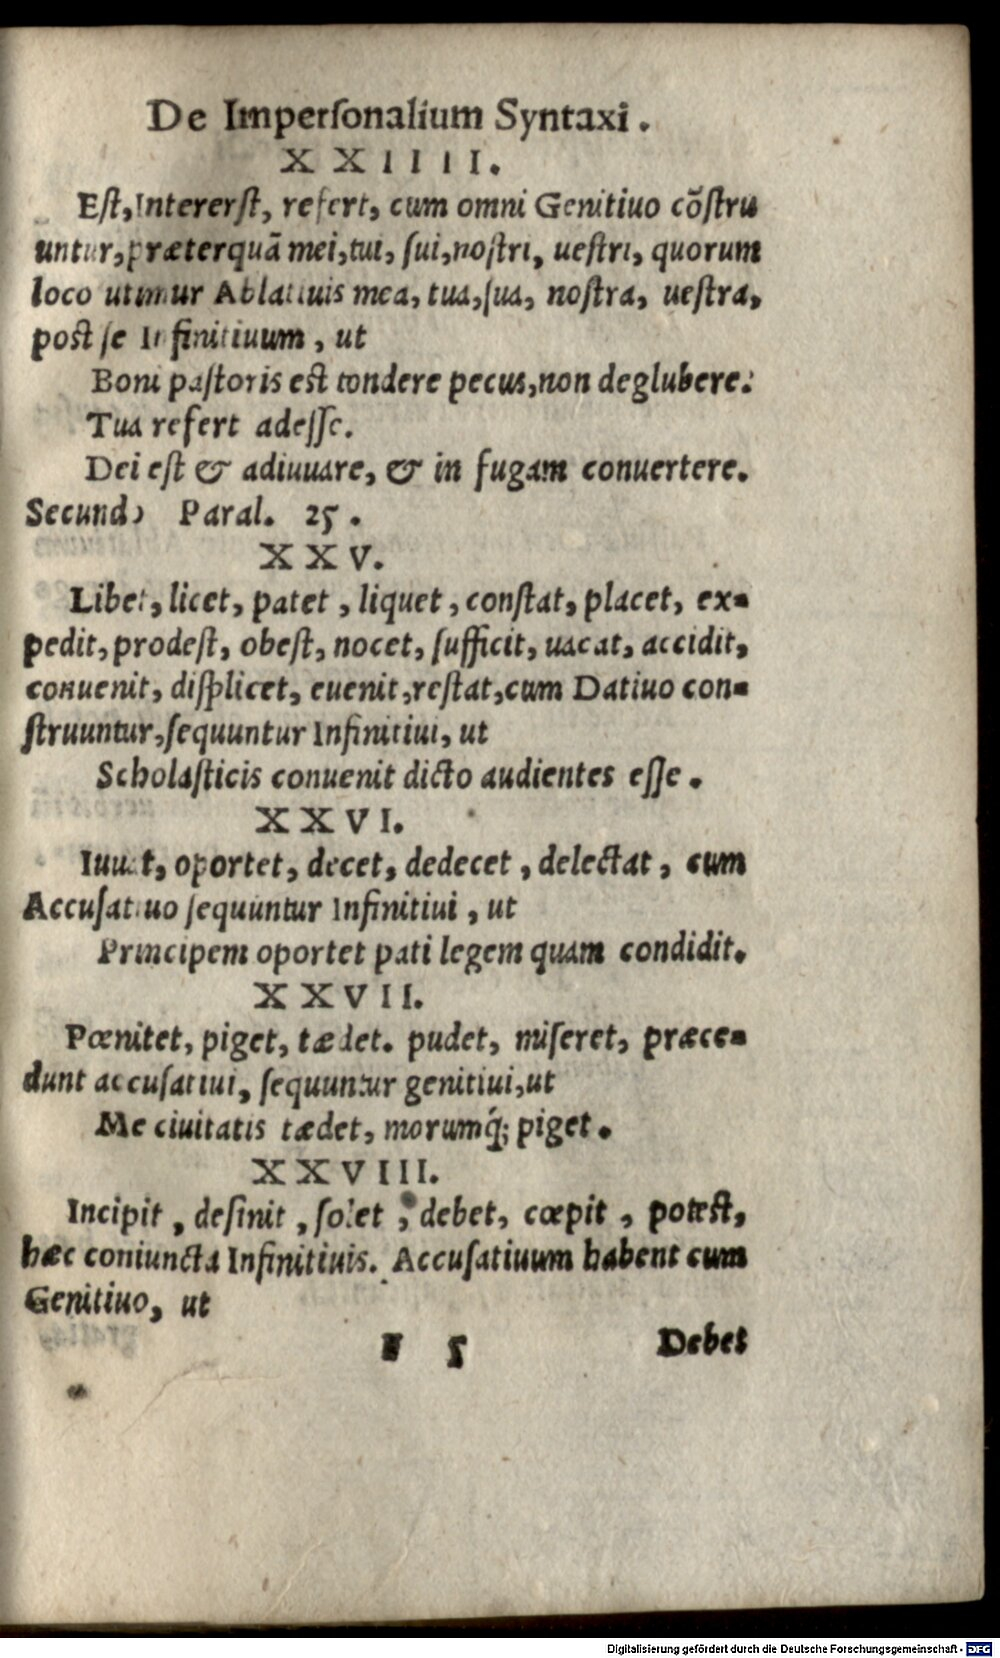 De Imperſonalium Syntaxi.
XXIIII.
Eſt, Intererſt, refert, cum omni Genitiuo cõſtru
untur, præterquã mei, tui, ſui, noſtri, ueſtri, quorum
loco utimur Ablatiuis mea, tua, ſua, noſtra, ueſtra,
poſt ſe Infinitiuum, ut
Boni paſtoris eſt tondere pecus, non deglubere.
Tua refert adeſſe.
Dei eſt & adiuuare, & in fugam conuertere.
Secundo Paral. 25.
XXV.
Libet, licet, patet, liquet, conſtat, placet, ex-
pedit, prodeſt, obeſt, nocet, ſufficit, uacat, accidit,
conuenit, diſplicet, euenit, reſtat, cum Datiuo con-
ſtruuntur, ſequuntur Infinitiui, ut
Scholaſticis conuenit dicto audientes eſſe.
XXVI.
Iuuat, oportet, decet, dedecet, delectat, cum
Accuſatiuo ſequuntur Infinitiui, ut
Principem oportet pati legem quam condidit.
XXVII.
Pœnitet, piget, tædet. pudet, miſeret, præce-
dunt accuſatiui, ſequuntur genitiui, ut
Me ciuitatis tædet, morumq́; piget.
XXVIII.
Incipit, deſinit, ſolet, debet, cœpit, poteſt,
hæc coniuncta Infinitiuis. Accuſatiuum habent cum
Genitiuo, ut
5 Debet
Digitalisierung gefördert durch die Deutsche Forschungsgemeinschaft - DFG